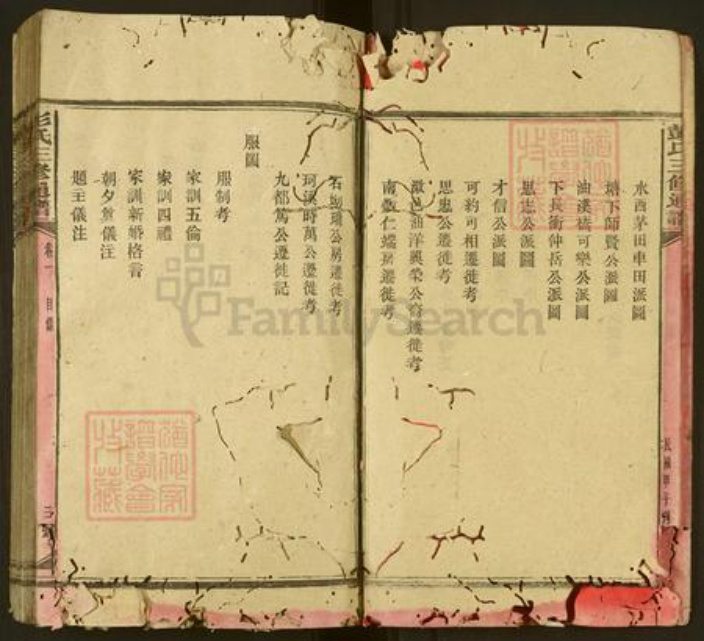 彭氏三修通譜
水西茅田車田派圖
塘下師賢公派圖
油溪橋可樂公派圖
下長衝仲岳公派圖
思志公派圖
才信公派圖
可約可相遷徙考
思忠公遷徙考
油洋興榮公裔遷徙考
石
公房遷徙考
珂溪時萬公遷徙考
九都篤公遷徙記
服圖
服制考
家訓五倫
家訓四禮
家訓新婚格言
朝夕奠儀注
題主儀注
彭氏三修通譜
卷一
目錄
FamilySearch